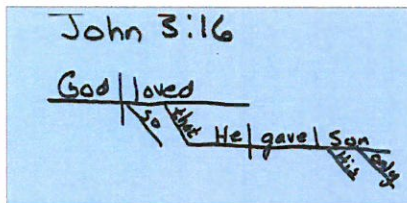 John 3:16
God loved
so that
He gave Son
His only